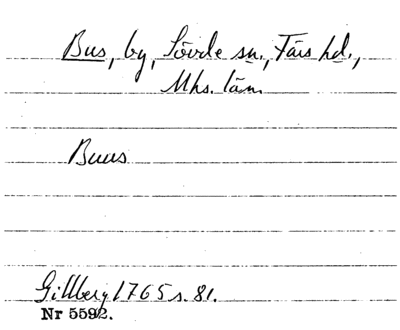 Bus, by, Sövde sn., Färs hd.,
Mhs. län.
Buus
Gillberg 1765 s. 81.
Nr 5592.